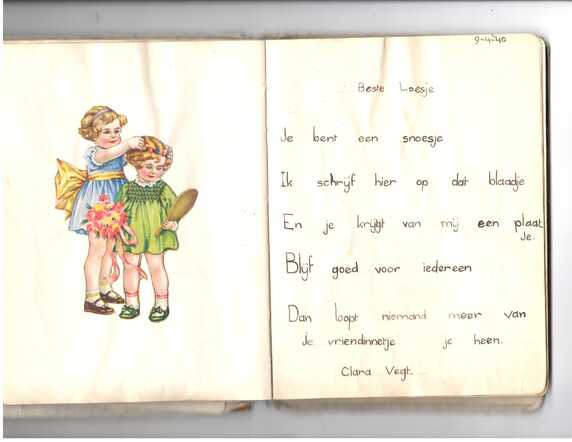 9-4-40
Beste Loesje
Je bent een snoesje
Ik schrijf hier op dat blaadje
En je krijgt van mij een plaat
je.
Blijf goed voor iedereen
Dan loopt niemand meer van
Je vriendinnetje je heen.
Clara Vegt.